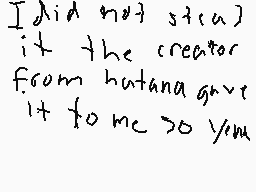 I did not steal
it the creator
from hatana gave
it to me so yeah